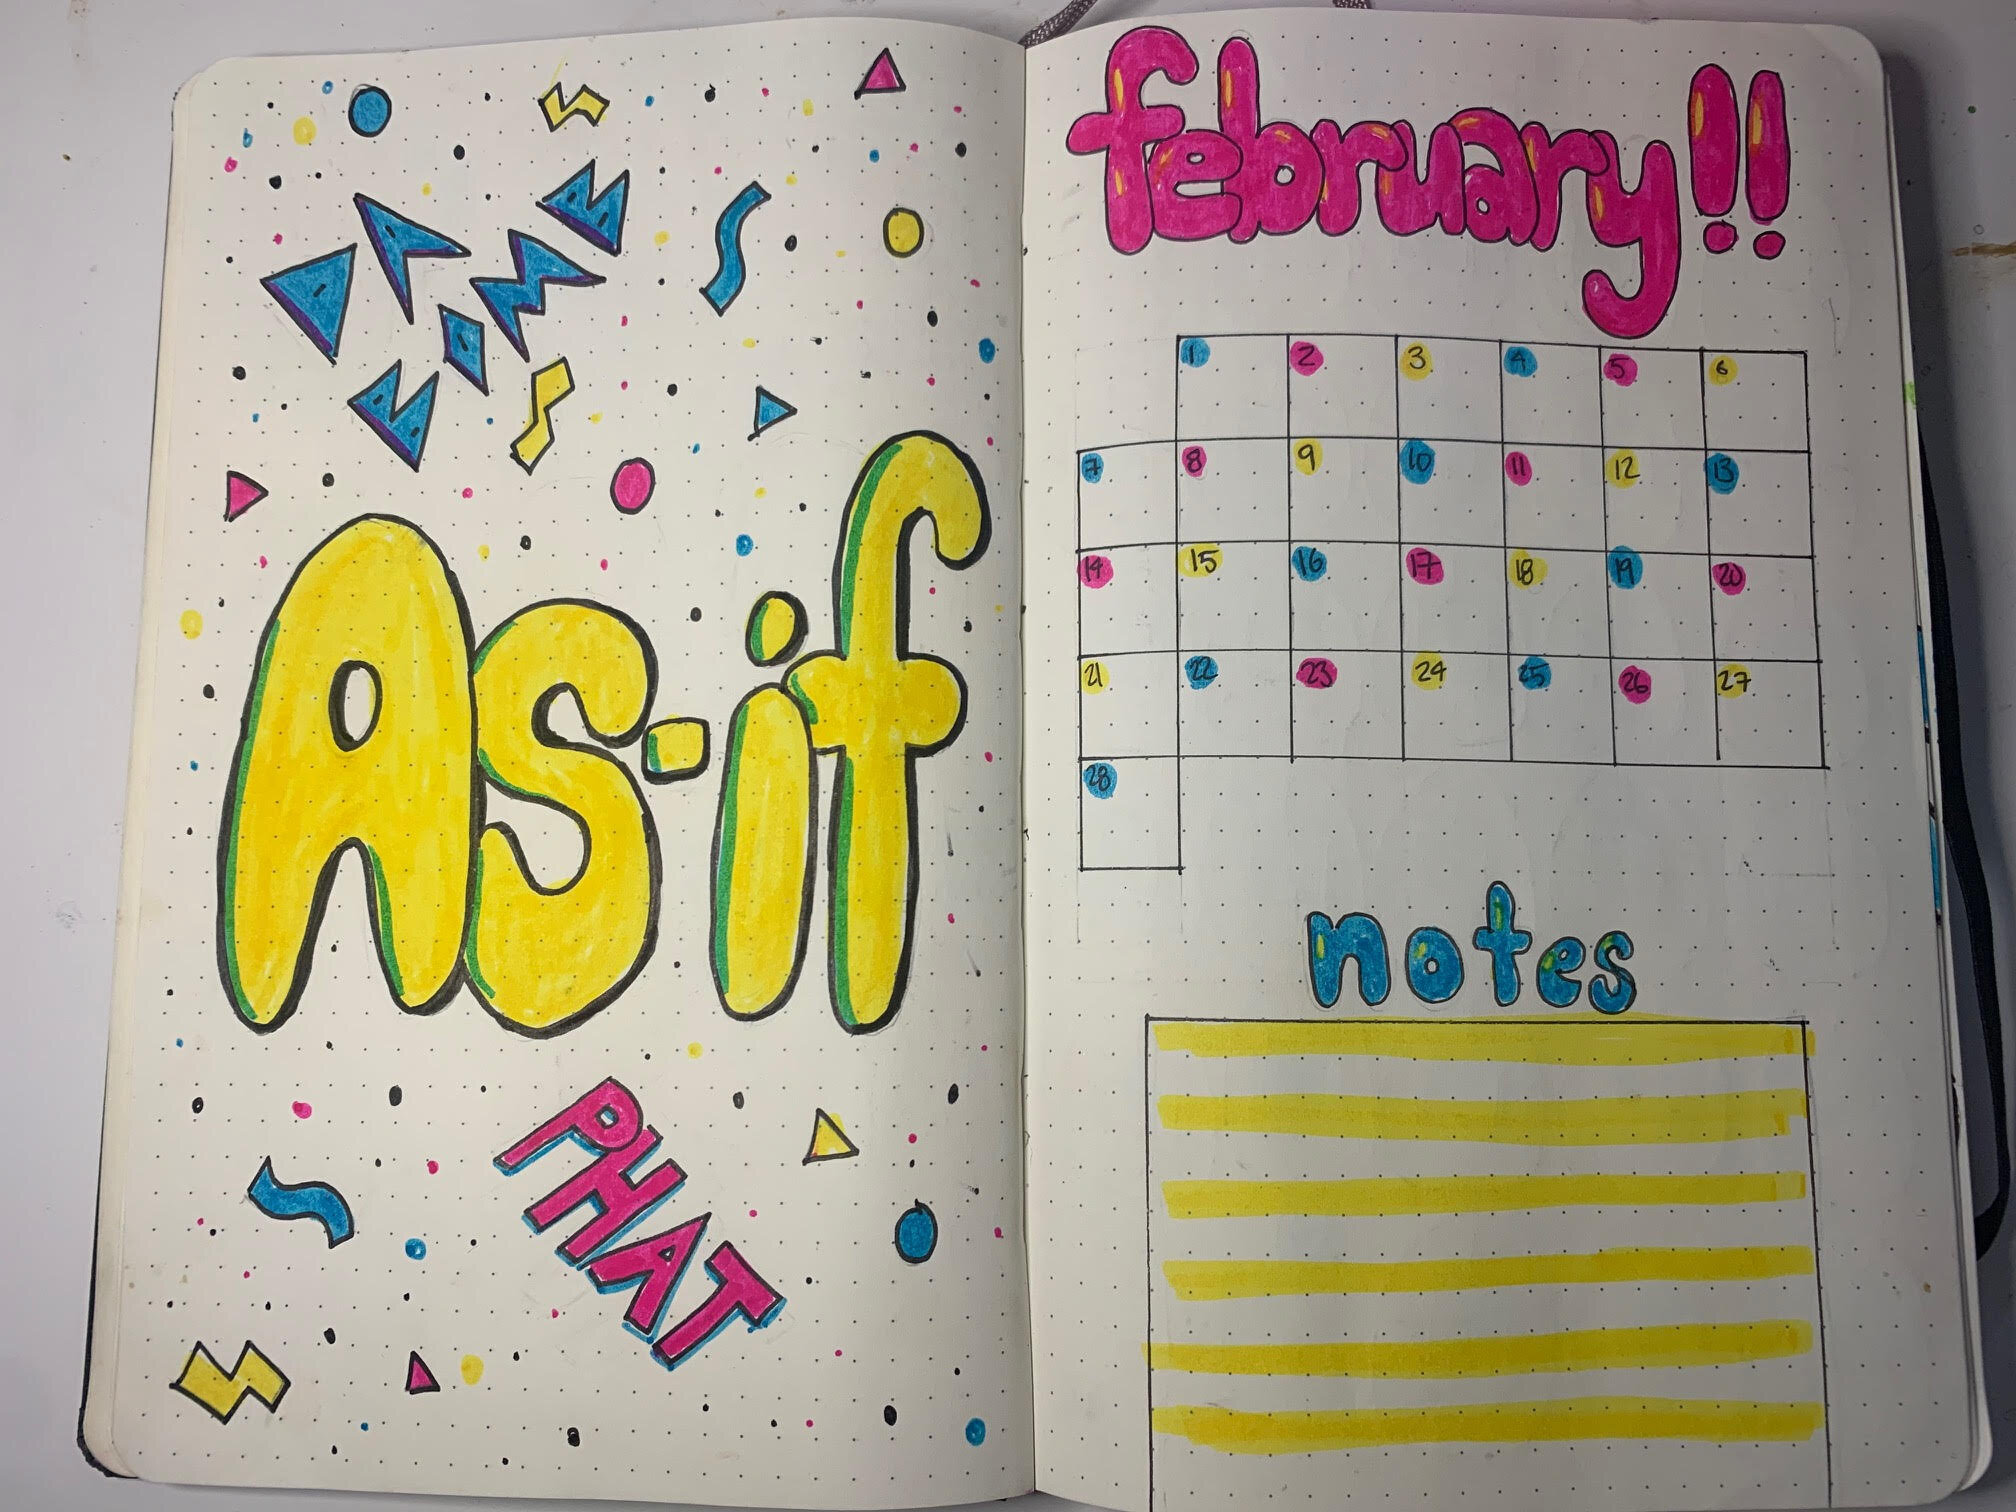 DA
BOMB
As-if
PHAT
february!!
1 2 3 4 5 6
7 8 9 10 11 12 13
14 15 16 17 18 19 20
21 22 23 24 25 26 27
28
notes